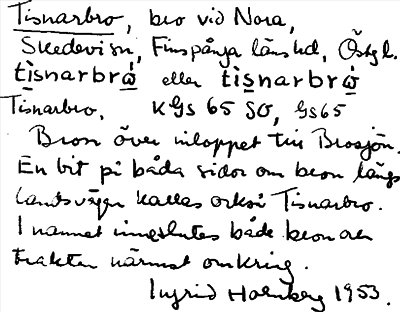 Tisnarbro, bro vid Nora,
Skedevi sn, Finspånga läns hd, Östgl.
tìsnarbrὼ eller tìsnarbrὼ
Tisnarbro. KGs 65 SO, Gs65
Bron över inloppet till Brosjön.
En bit på båda sidor om bron längs
landsvägen kallas också Tisnarbro.
I namnet inneslutes både bron och
trakten närmast omkring.
Ingrid Holmberg 1953.